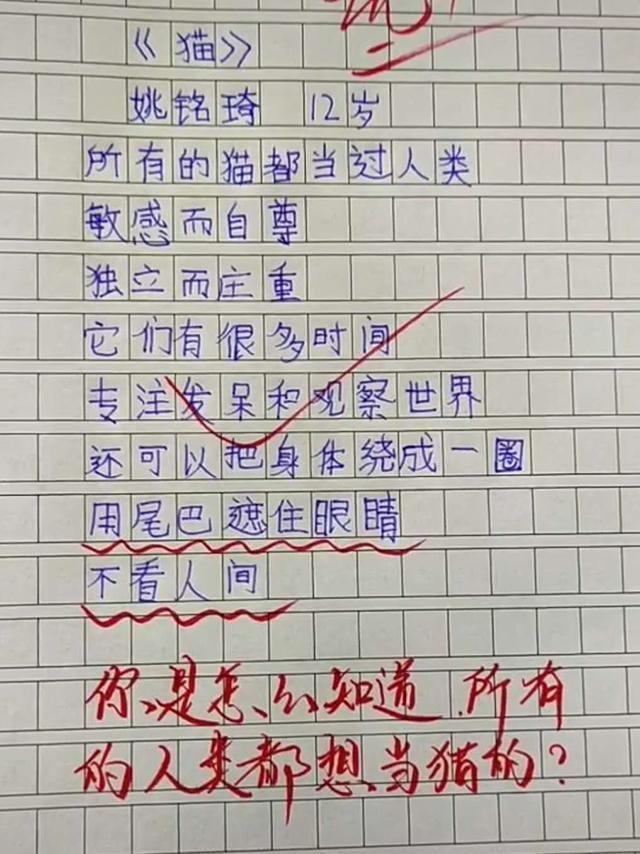 《猫》
姚铭琦 12岁
所有的猫都当过人类
敏感而自尊
独立而庄重
它们有很多时间
专注发呆和观察世界
还可以把身体绕成一圈
用尾巴遮住眼睛
不看人间
你是怎么知道.所有
的人类都想当猫的?